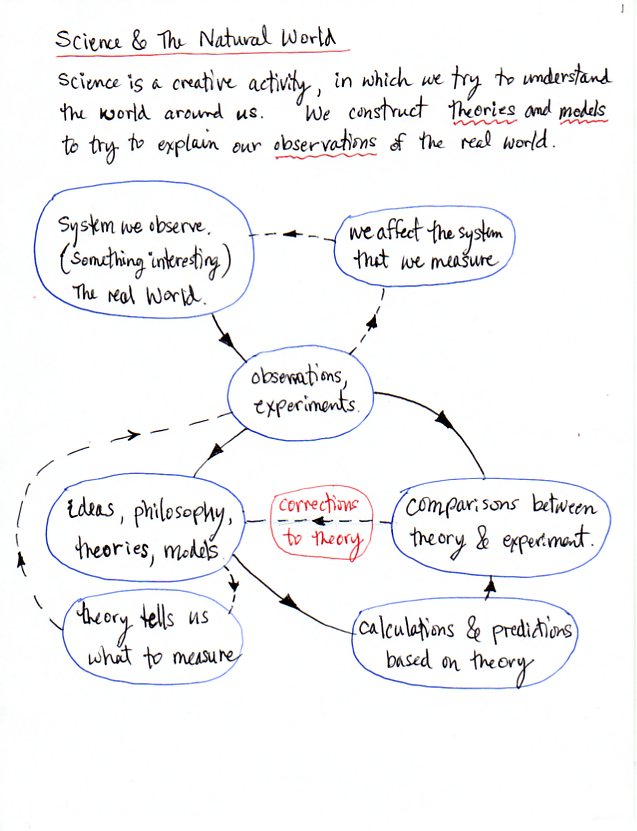 1
Science & The Natural World
Science is a creative activity, in which we try to understand
the world around us. We construct theories and models
to try to explain our observations of the real world.
System we observe.
(Something interesting)
The real World.
we affect the system
that we measure
observations,
experiments.
ideas, philosophy,
theories, models
corrections
to theory
comparisons between
theory & experiment.
theory tells us
what to measure
calculations & predictions
based on theory